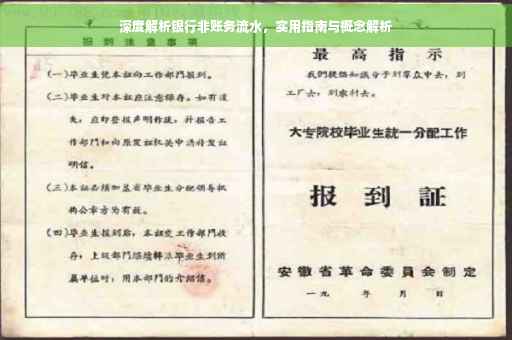 深度解析银行非账务流水，实用指南与概念解析
报到注意事项
(一)毕业生凭本证向工作部门报到。
(二)毕业生对本证应注意保存。如有遗
失，应即登报声明作废，并报告工
作部门和向原发证机关申请补发证
明信。
(三)本证必须加盖省毕业生分配领导机
构公章方为有效。
(四)毕业生报到后，本证交工作部门收
存；上级部门继续转派毕业生到所
属单位时，用本部门的介绍信。
最高指示
我们提倡知识分子到群众中去，到
工厂去，到农村去。
大专院校毕业生统一分配工作
报到証
安徽省革命委員会制定
一九 年 月 日